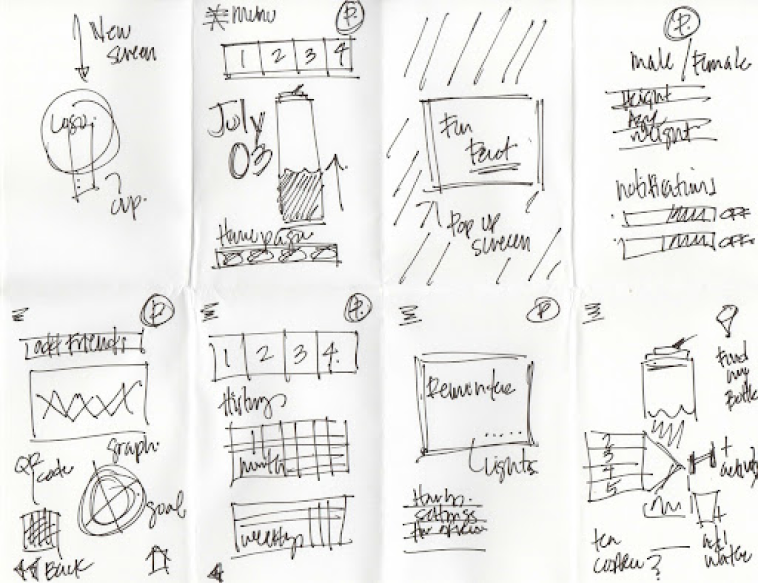 New
screen
Logo
cup.
Menu
P.
1 2 3 4
July
03
Home page
Fun
Fact
Pop up
screen
P.
male / Female
Height
Age
weight
notifications
OFF
OFF
P.
add Friends
QR
code
graph
goal
Back
P.
1 2 3 4.
History
month
weekly
P
Lights
settings
Find
my
Bottle
2
3
4
5
+
activity
add
water